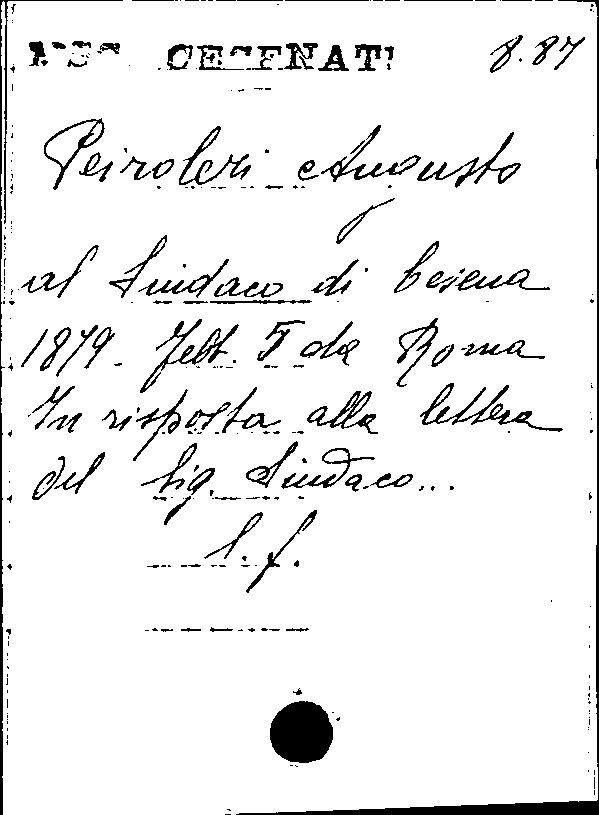 MSS. CESENATI 8.87
Peiroleri Augusto
al Sindaco di Cesena
1879. Febb. 5 da Roma
In risposta alla lettera
del Sig. Sindaco...
l. f.